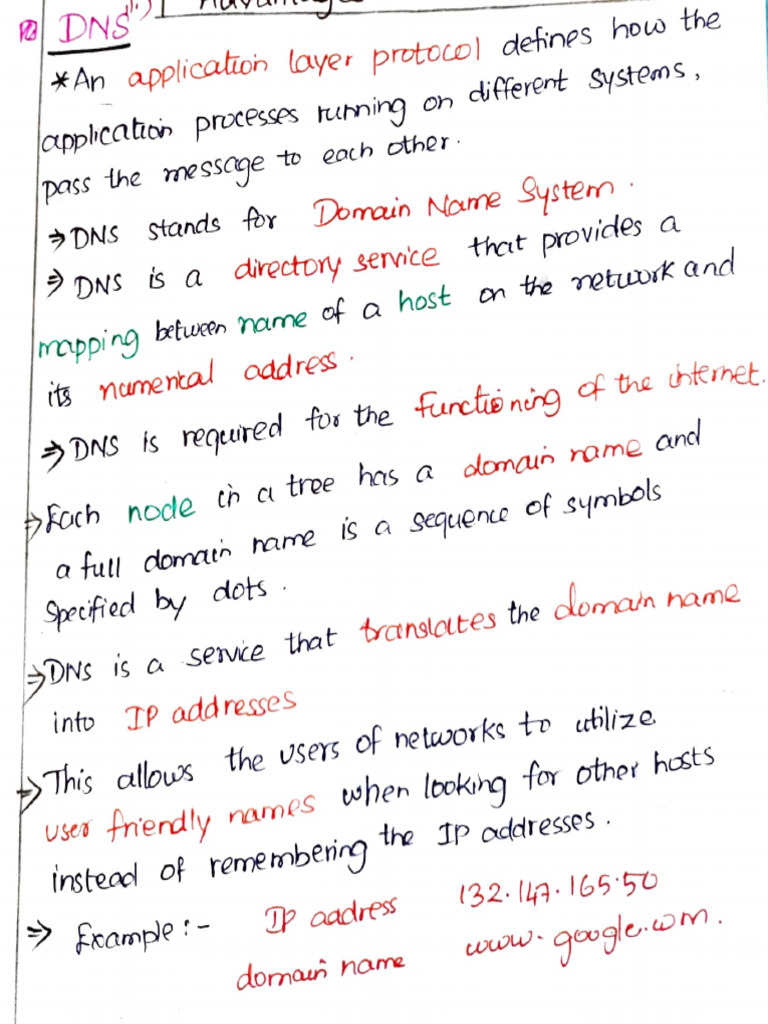 Advantage
DNS
*An application layer protocol defines how the
application processes running on different systems,
pass the message to each other.
⇒ DNS stands for Domain Name System.
⇒ DNS is a directory service that provides a
mapping between name of a host on the network and
its numerical address.
⇒ DNS is required for the functioning of the internet.
⇒ Each node in a tree has a domain name and
a full domain name is a sequence of symbols
specified by dots.
⇒ DNS is a service that translates the domain name
into IP addresses
⇒ This allows the users of networks to utilize
user friendly names when looking for other hosts
instead of remembering the IP addresses.
⇒ Example:- IP aadress 132.147.165.50
domain name www.google.com.